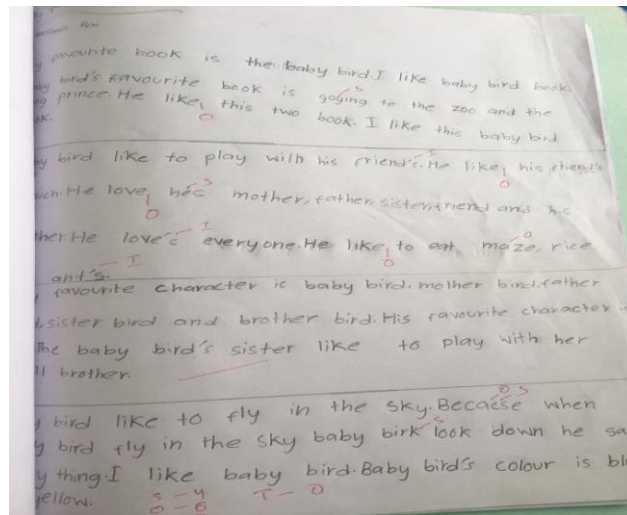 favourite book is the baby bird. I like baby bird book.
bird's favourite book is goging to the zoo and the
prince. He like this two book. I like this baby bird
bird like to play with his friend's. He like his friend's
He love hes mother, father, sister, friend and his
He love's everyone. He like to eat, maize, rice
ant's.
favourite character is baby bird, mother bird, father
sister bird and brother bird. His favourite character
The baby bird's sister like to play with her
brother.
bird like to fly in the sky. Becacse when
bird fly in the sky baby birk look down he
thing. I like baby bird. Baby bird's colour is
yellow.
S - 4
O - 6
I - 0